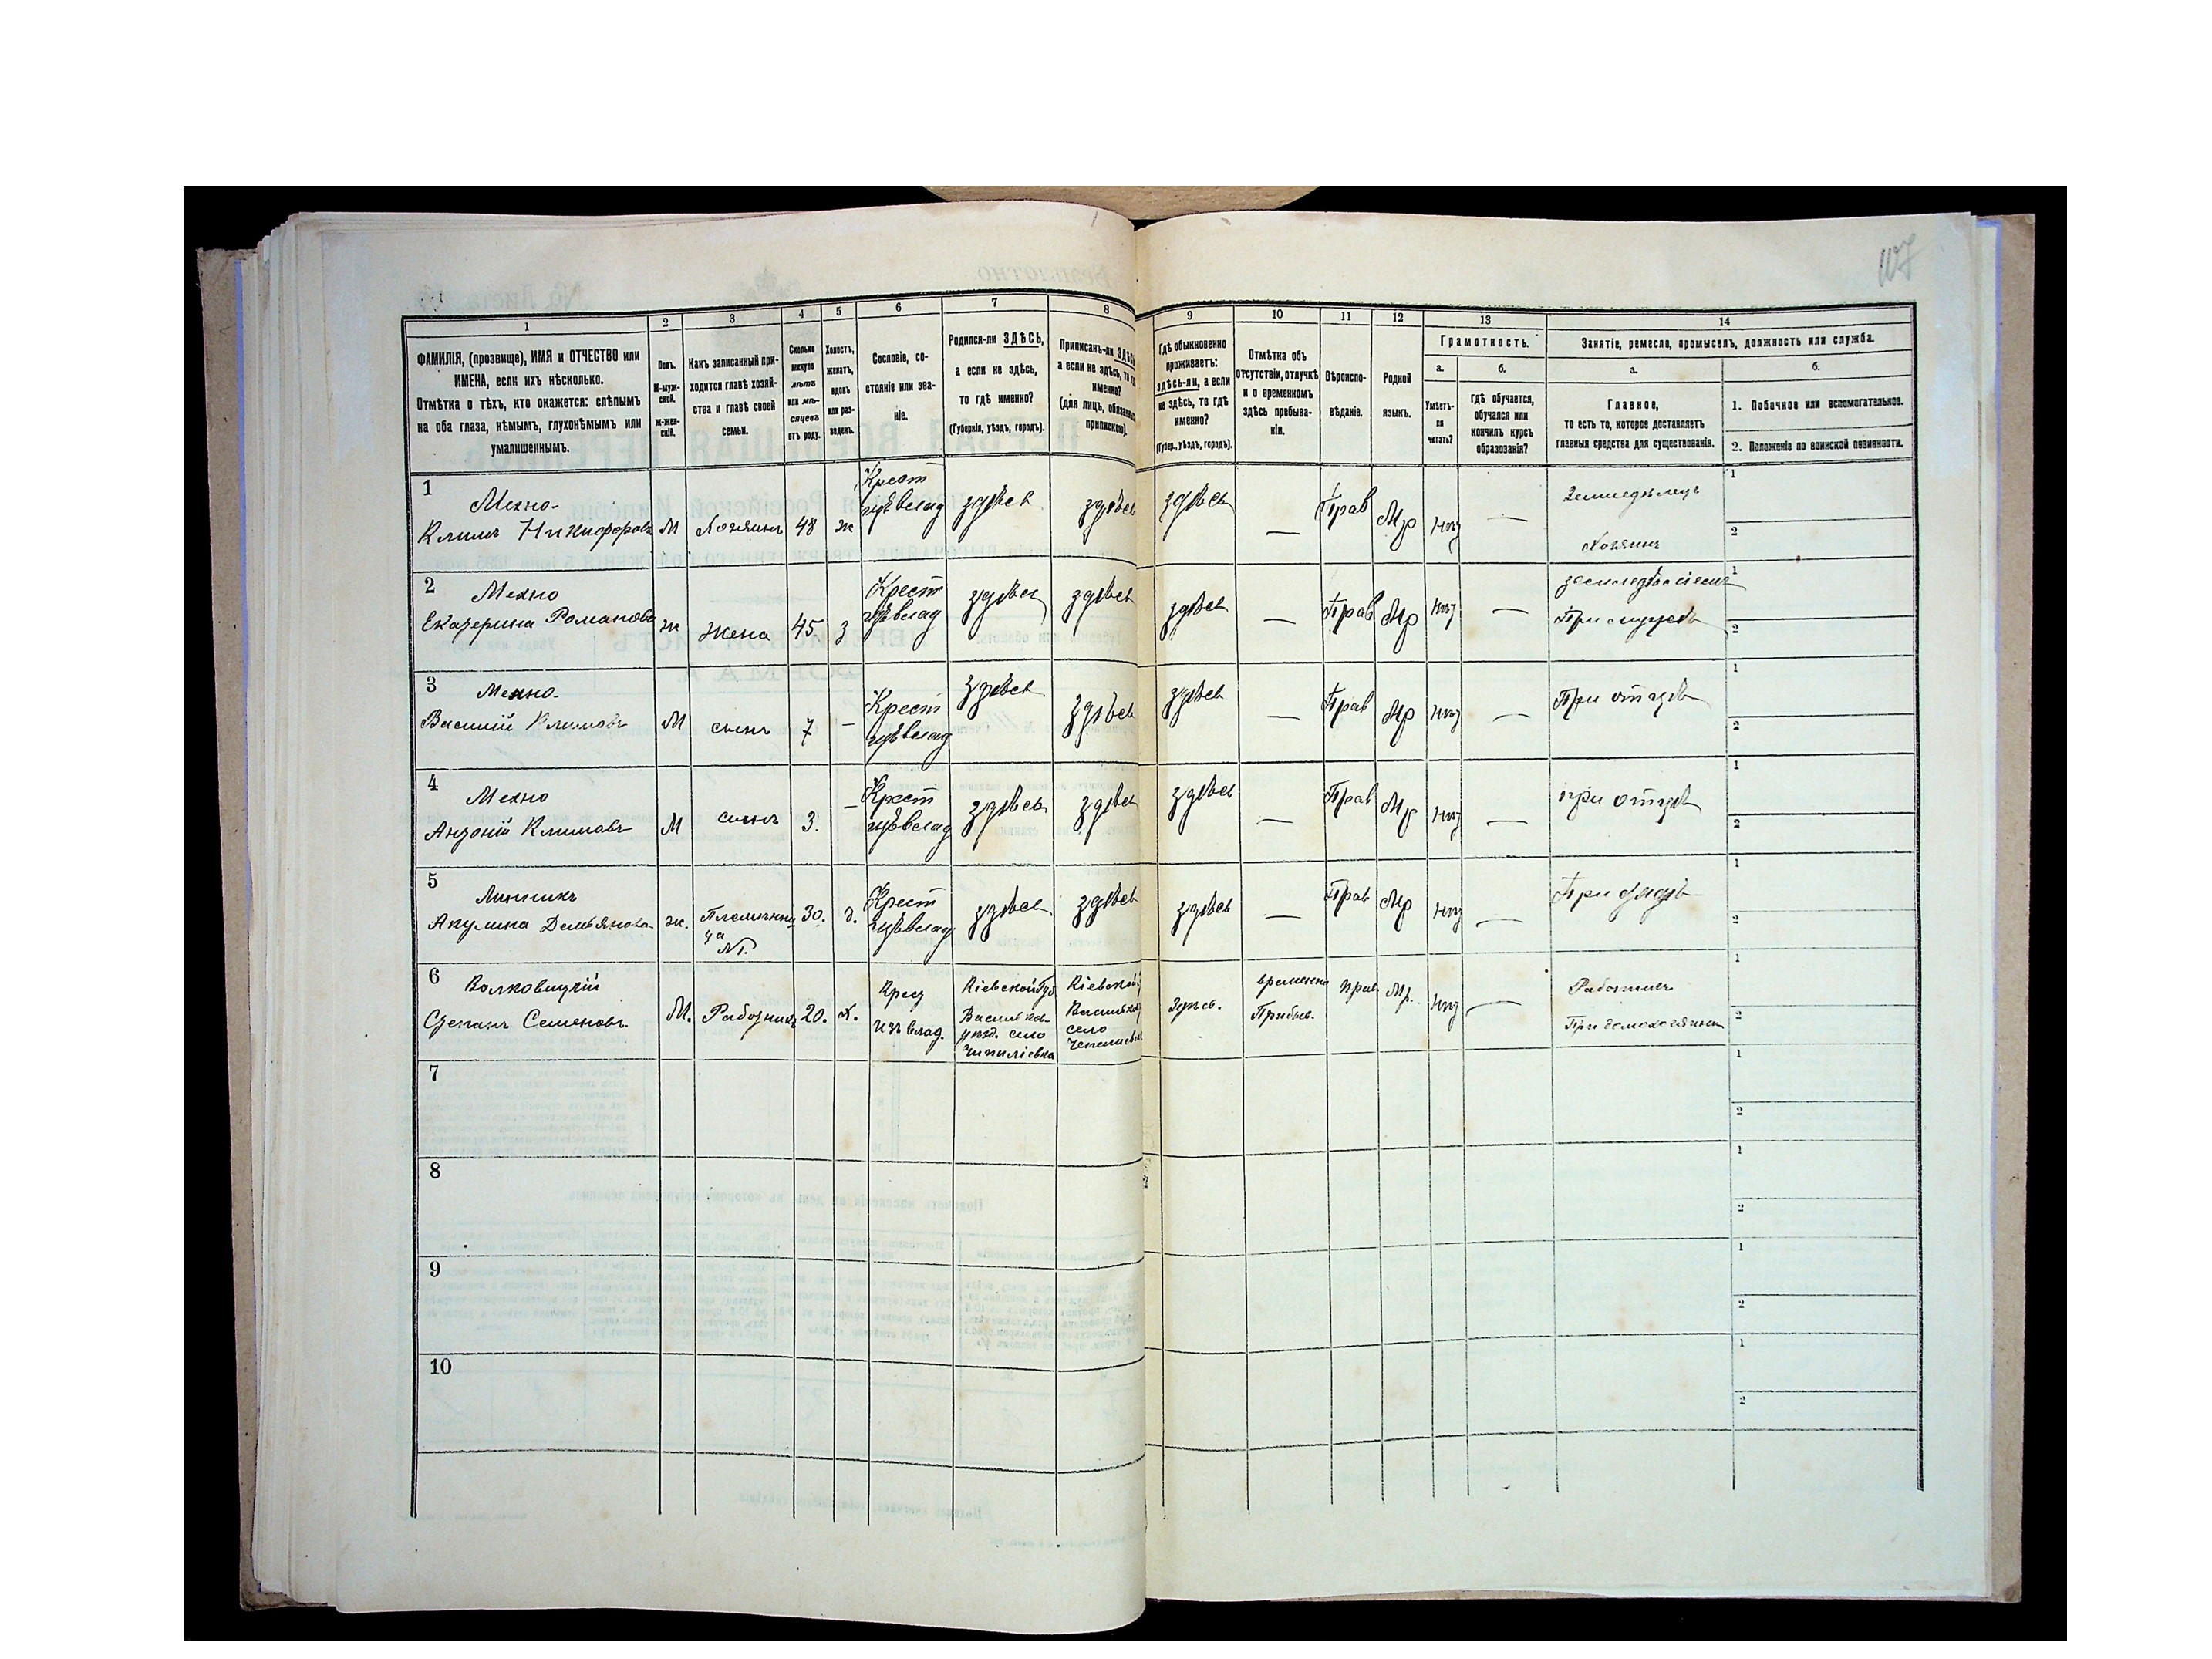 107
1
2
3
4
5
6
7
8
9
10
11
12
13
14
ФАМИЛІЯ, (прозвище), ИМЯ и ОТЧЕСТВО или
ИМЕНА, если ихъ нѣсколько.
Отмѣтка о тѣхъ, кто окажется: слѣпымъ
на оба глаза, нѣмымъ, глухонѣмымъ или
умалишеннымъ.
Полъ.
М-муж-
ской.
Ж-жен-
скій.
Какъ записанный при-
ходится главѣ хозяй-
ства и главѣ своей
семьи.
Сколько
минуло
лѣтъ
или мѣ-
сяцевъ
отъ роду.
Холостъ,
женатъ,
вдовъ
или раз-
веденъ.
Сословіе, со-
стояніе или зва-
ніе.
Родился-ли ЗДѢСЬ,
а если не здѣсь,
то гдѣ именно?
(Губернія, уѣздъ, городъ).
Приписанъ-ли ЗДѢСЬ
а если не здѣсь, то гдѣ
именно?
(для лицъ, обязанныхъ
припискою).
Гдѣ обыкновенно
проживаетъ:
здѣсь-ли, а если
не здѣсь, то гдѣ
именно?
(Губер., уѣздъ, городъ).
Отмѣтка объ
отсутствіи, отлучкѣ
и о временномъ
здѣсь пребыва-
ніи.
Вѣроиспо-
вѣданіе.
Родной
языкъ.
Грамотность.
а.
Умѣетъ-
ли
читать?
б.
гдѣ обучается,
обучался или
кончилъ курсъ
образованія?
Занятіе, ремесло, промыселъ, должность или служба.
а.
Главное,
то есть то, которое доставляетъ
главныя средства для существованія.
б.
1. Побочное или вспомогательное.
2. Положеніе по воинской повинности.
1
Мехно-
Климъ Никифоровъ
М
Хозяинъ
48
ж
Крест
изъ влад
здѣсь
здѣсь
здѣсь
—
Прав
Мр
нѣт
—
Земледѣлецъ
Хозяинъ
1
2
2
Мехно
Екатерина Романова
ж
Жена
45
з
Крест
изъ влад
здѣсь
здѣсь
здѣсь
—
Прав
Мр
нѣт
—
При мужѣ
1
2
3
Мехно-
Василій Климовъ
М
сынъ
7
—
Крест
изъ влад
здѣсь
здѣсь
здѣсь
—
Прав
Мр
нѣт
—
При отцѣ
1
2
4
Мехно
Антоній Климовъ
М
сынъ
3.
—
Крест
изъ влад
здѣсь
здѣсь
здѣсь
—
Прав
Мр
нѣт
—
при отцѣ
1
2
5
Линникъ
Акулина Демьянова-
ж.
Племянни
ца
30.
Крест
изъ влад
здѣсь
здѣсь
здѣсь
—
Прав
Мр
нѣт
—
При дядѣ
1
2
6
Волковицкій
Степанъ Семеновъ.
М.
Работникъ
20.
х.
Крест
изъ влад.
Кіевской Губ.
Васильков-
уѣзд. село
Чипиліевка
Кіевской
село
Здѣсь.
временно
Прибыв.
Прав
Мр.
нѣт
—
Работникъ
При домохозяинѣ
1
2
7
1
2
8
1
2
9
1
2
10
1
2